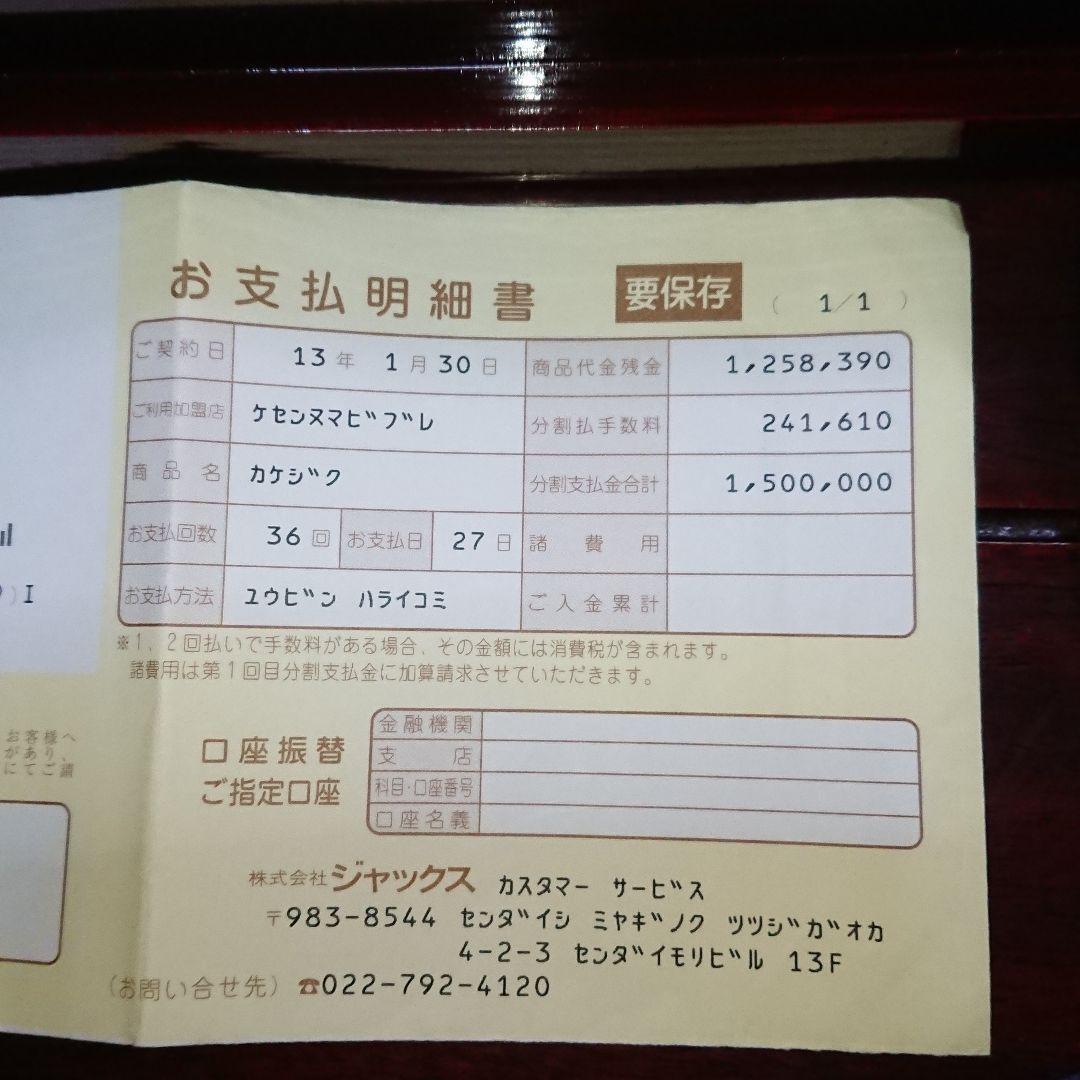 お支払明細書 要保存 ( 1/1 )
ご契約日 13年 1月30日 商品代金残金 1,258,390
ご利用加盟店 ケセンヌマビブレ 分割払手数料 241,610
商品名 カケジク 分割支払金合計 1,500,000
お支払回数 36回 お支払日 27日 諸費用
お支払方法 ユウビン ハライコミ ご入金累計
※1、2回払いで手数料がある場合、その金額には消費税が含まれます。
諸費用は第1回目分割支払金に加算請求させていただきます。
)I
お客様へ
があり、
にてご請
口座振替
ご指定口座
金融機関
支店
科目・口座番号
口座名義
株式会社ジャックス カスタマー サービス
〒983-8544 センダイシ ミヤギノク ツツジガオカ
4-2-3 センダイモリビル 13F
(お問い合せ先) ☎022-792-4120